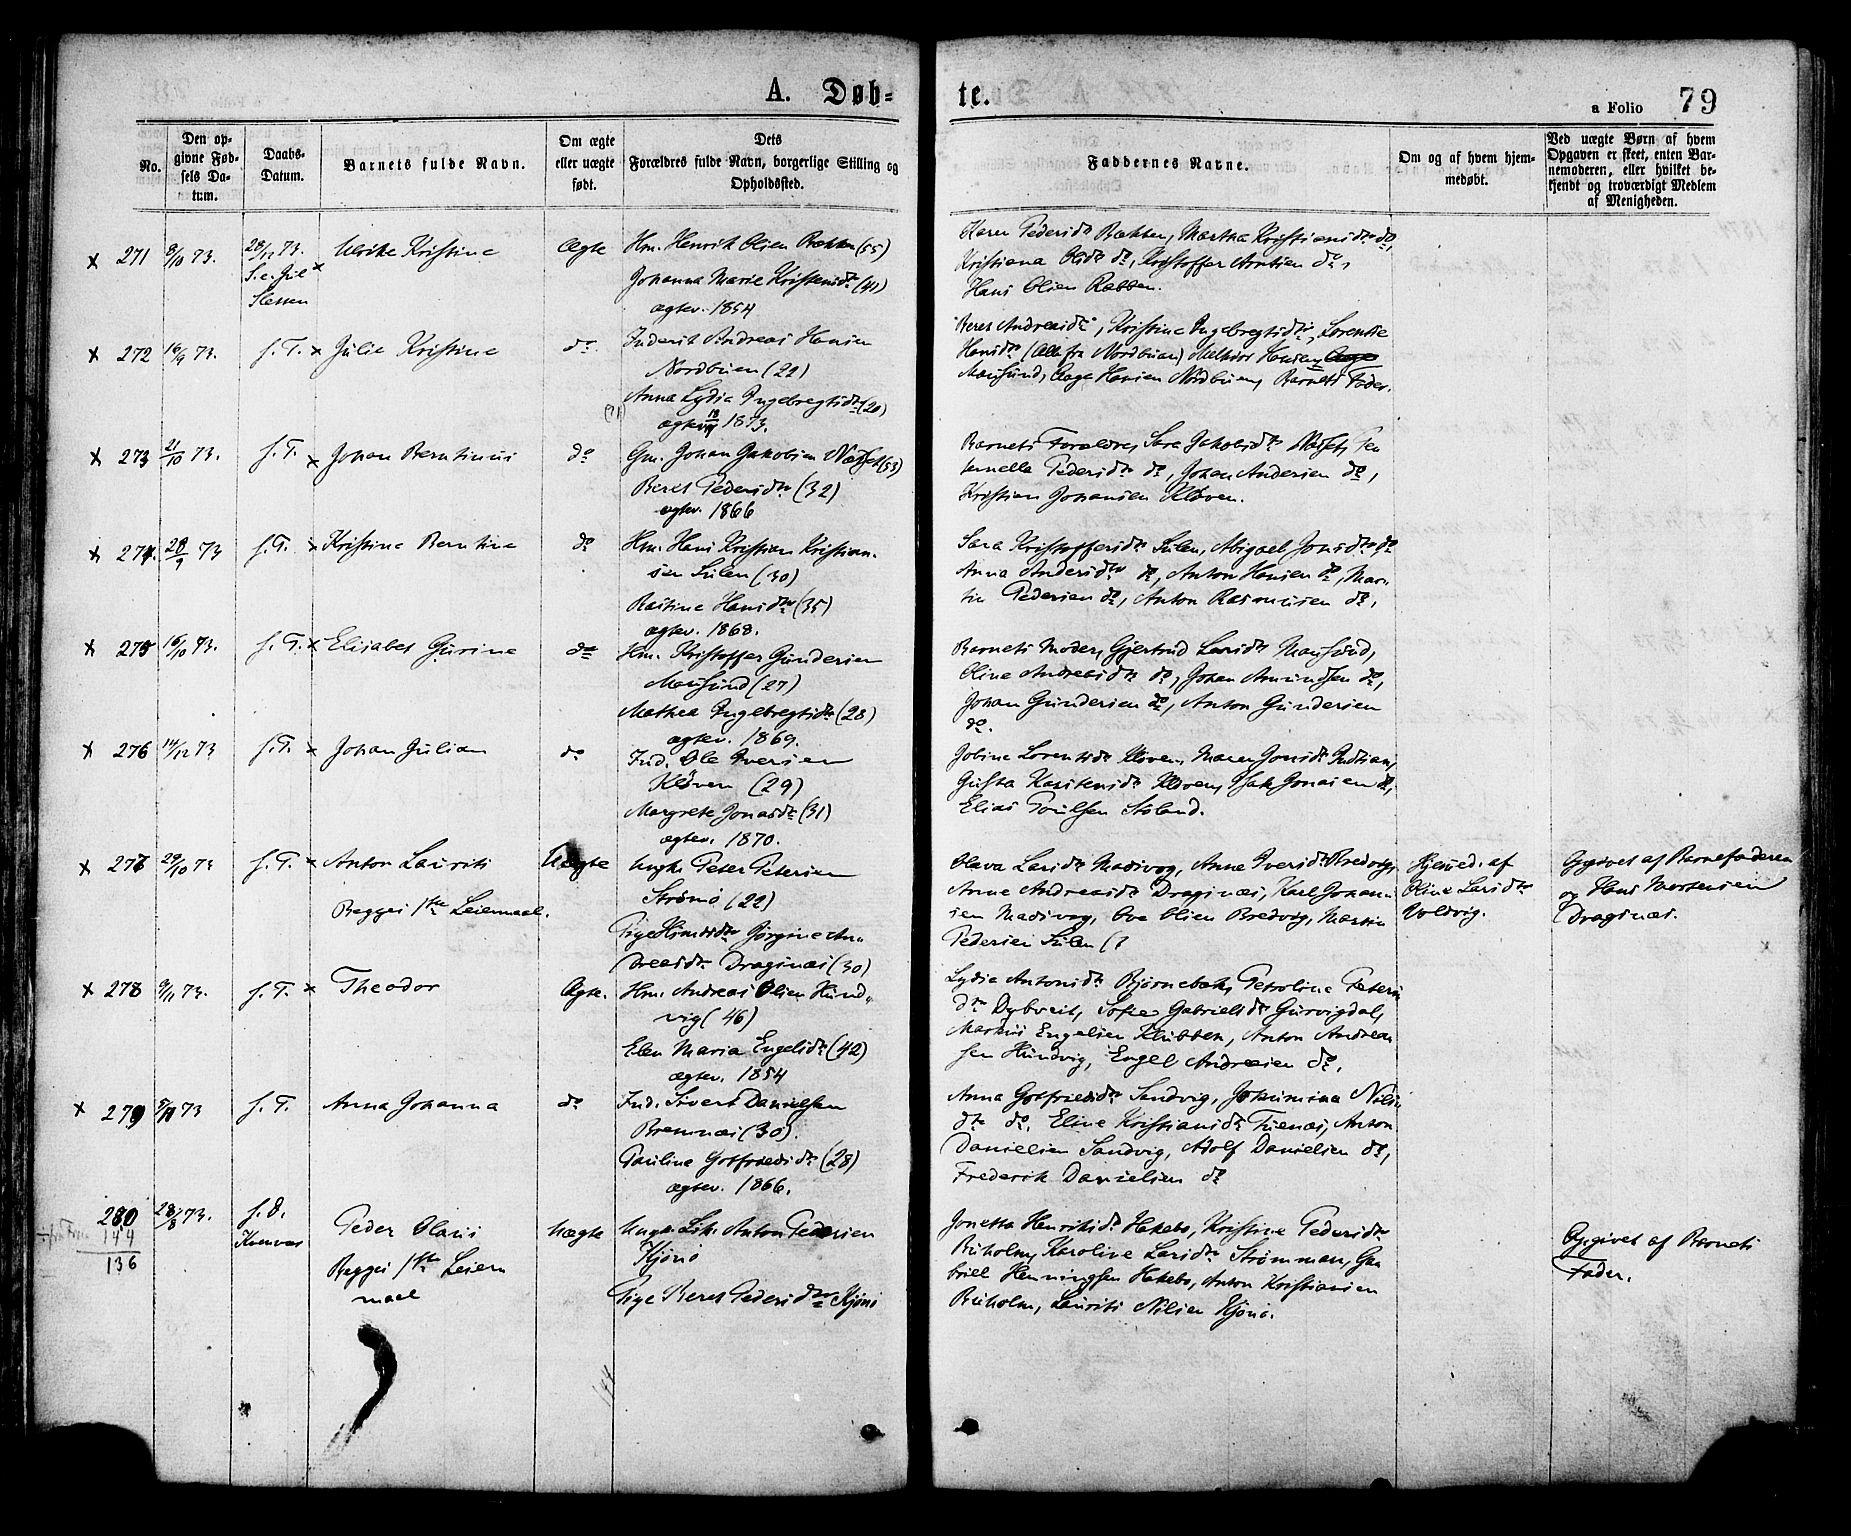 A. Døb=
te.
a Folio 79
No.
Den op-
givne Fød-
sels Da-
tum.
Daabs-
Datum.
Barnets fulde Navn.
Om ægte
eller uægte
født.
Dets
Forældres fulde Navn, borgerlige Stilling og
Opholdssted.
Faddernes Navne.
Om og af hvem hjem-
medøbt.
Ved uægte Børn af hvem
Opgaven er skeet, enten Bar-
nemoderen, eller hvilket be-
kjendt og troværdigt Medlem
af Menigheden.
x 271 8/10 73. 28/12 73. Ulrike Kristine Ægte Hm. Henrik Olsen Bækken (55)
S. e. Jul x
Slessen
Johanna Marie Kristensdtr (41)
ægtev. 1854
Karen Pedersdtr Bækken, Martha Kristiansdtr do,
Kristiana Olsdtr do, Kristoffer Arntsen do,
Hans Olsen Rabben.
x 272 16/9 73. s. D. x Julie Kristine do. Inderst Andreas Hansen
Nordbuen (22)
Anna Lydia Ingebregtsdtr (20)
1873.
Beret Andreasdtr, Kristine Ingebregtsdtr, Lorentse
Hansdtr (Alle fra Nordbuan) Melkior Hansen
Mausund, Aage Hansen Nordbuen, Barnets Fader.
x 273 21/10 73. s. D. x Johan Berntinus do Gm. Johan Jakobsen Næsset (33)
Beret Pedersdtr (32)
ægtev. 1866
Barnets Forældre, Sara Jakobsdtr Næsset, Pe-
ternella Pedersdtr do, Johan Andersen do,
Kristian Johansen Kløven.
x 274. 28/9 73 s. D. x Kristine Berntine do Hm. Hans Kristian Kristian-
sen Sulen (30)
Bastine Hansdtr (35)
ægtev. 1868.
Sara Kristoffersdtr Sulen, Abigael Jonsdtr do
Anna Andersdtr do, Anton Hansen do, Mar-
tin Pedersen do, Anton Rasmusen do,
x 275 16/10 73. s. D. x Elisabet Gurine do Hm. Kristoffer Gundersen
Mausund (27)
Mathea Ingebregtsdtr (28)
ægtev. 1869.
Barnets Moder, Gjertrud Larsdtr Mausund,
Oline Andreasdtr do, Johan Amundsen do,
Johan Gundersen do, Anton Gundersen
do.
x 276 14/12 73 s. D. x Johan Julian do Ind. Ole Iversen
Kløven (29)
Margrete Jonasdtr (31)
ægtev. 1870.
Jobine Lorentsdtr Kløven, Maren Jonsdtr
Gusta Karstensdtr Kløven, Isak Jonasen do,
Elias Poulsen
x 277 29/10 73 s. D. x Anton Laurits Uægte Ungk. Peter Petersen
Strømø (22)
Begges 1ste Leiermaal.
Jørgine An-
dreasdtr Dragsnæs (30)
Olava Larsdtr Madsvog, Anne Iversdtr Bredvig,
Anne Andreasdtr Dragsnæs, Karl Johan-
sen Madsvog, Ove Olsen Bredvig, Martin
Pedersen Sulen (?
Hjemmed. af
Oline Larsdtr
Valsvig.
Opgivet af Barnefaderen
og Hans Mortensen
Dragsnæs.
x 278 9/11 73. s. D. x Theodor Ægte. Hm. Andreas Olsen Hund-
vig (46)
Elen Maria Engelsdtr (42)
ægtev. 1854
Lydia Antonsdtr Bjørnebæk, Petroline Peters-
dtr Dybveit, Sofie Gabrielsdtr Gurvigdal,
Markus Engelsen Klubben, Anton Andrea-
sen Hundvig, Engel Andreasen do.
x 279 8/11 73 s. D. Anna Johanna do Ind. Sivert Danielsen
Bremnæs (30).
Pauline Gotfriedsdtr (28)
ægtev. 1866.
Anna Gotfriedsdtr Sandvig, Johannina Nils-
dtr do, Eline Kristiansdtr Tuenæs, Anton
Danielsen Sandvig, Adolf Danielsen do,
Frederik Danielsen do
280 28/8 73. s. D. Peder Olaus Uægte Ungk. Anton Pedersen
144
136
Kjønø
Begges 1ste Leier-
maal
Pige Beret Pedersdtr Kjønø
Jonetta Henriksdtr Hakebo, Kristine Pedersdtr
Buholm, Karoline Larsdtr Strømman, Ga-
briel Henningsen Hakebo, Anton Kristiansen
Buholm, Laurits Nilsen Kjønø.
Opgivet af Barnets
Fader.
144